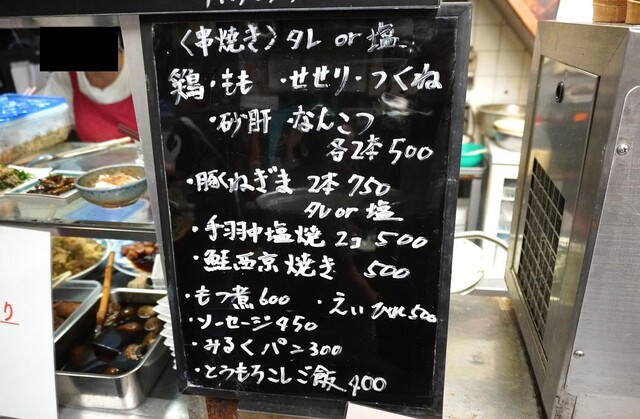 〈串焼き〉タレ or 塩
鶏・もも ・せせり・つくね
・砂肝 ・なんこつ
各2本 500
・豚くねぎま 2本 750
タレ or 塩
・手羽中塩焼 2コ 500
・鮭西京焼き 500
・もつ煮 600 ・えいひれ 500
・ソーセージ 450
・みるくパン 300
・とうもろこしご飯 400
り